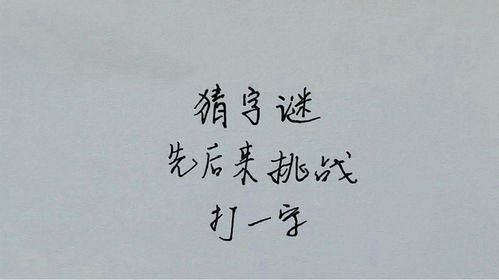 猜字谜
先后来挑战
打一字